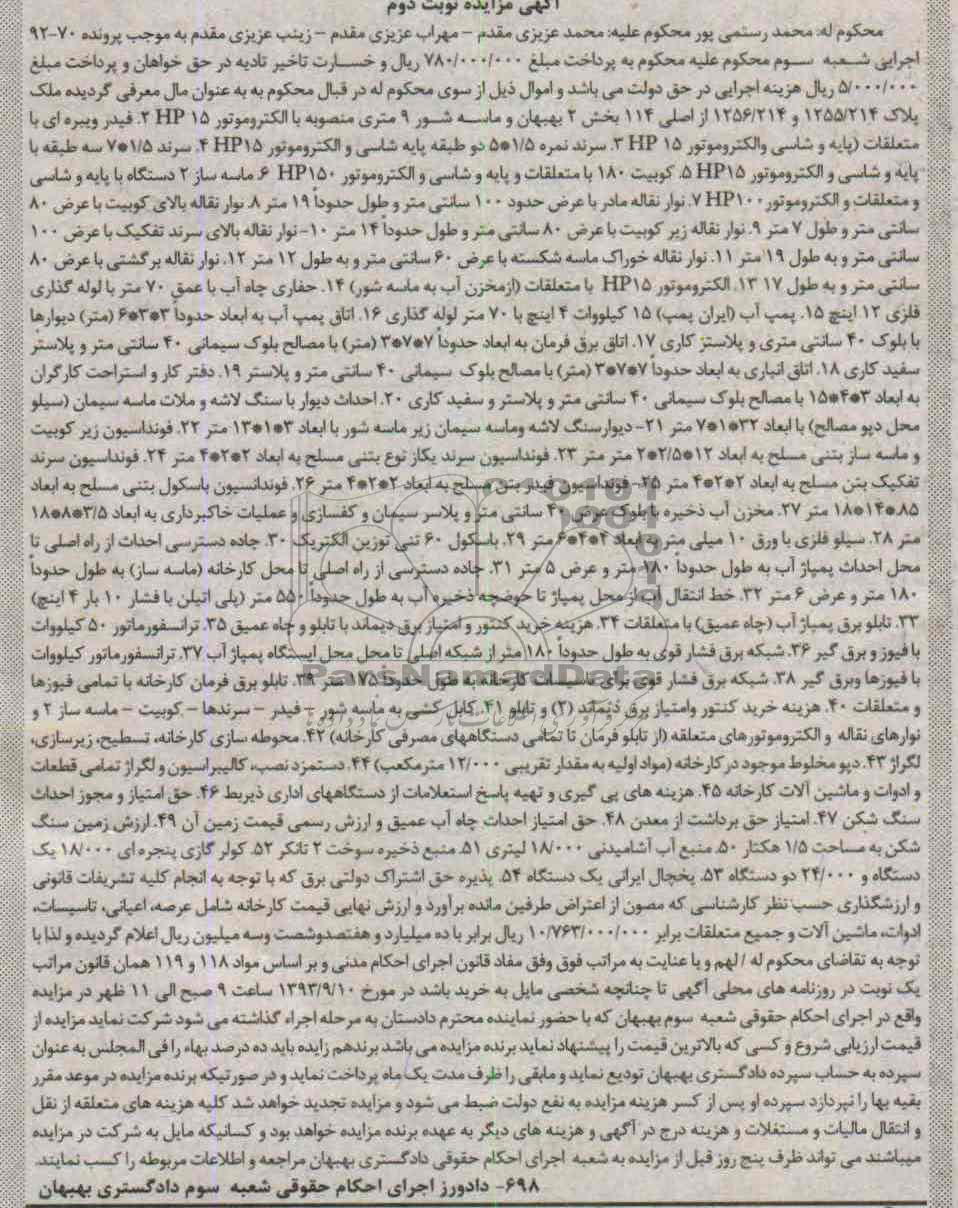 آگهی مزایده نوبت دوم
محکوم له: محمد رستمی پور محکوم علیه: محمد عزیزی مقدم - مهراب عزیزی مقدم - زینب عزیزی مقدم به موجب پرونده ۷۰-۹۲
اجرایی شعبه سوم محکوم علیه محکوم به پرداخت مبلغ ۷۸۰/۰۰۰/۰۰۰ ریال و خسارت تاخیر تادیه در حق خواهان و پرداخت مبلغ
۵/۰۰۰/۰۰۰ ریال هزینه اجرایی در حق دولت می باشد و اموال ذیل از سوی محکوم له در قبال محکوم به به عنوان مال معرفی گردیده ملک
پلاک ۱۲۵۵/۲۱۴ و ۱۲۵۶/۲۱۴ از اصلی ۱۱۴ بخش ۲ بهبهان و ماسه شور ۹ متری منصوبه با الکتروموتور ۱۵ HP ۲. فیدر ویبره ای با
متعلقات (پایه و شاسی والکتروموتور ۱۵ HP ۳. سرند نمره ۱/۵*۵ دو طبقه پایه شاسی و الکتروموتور HP۱۵ ۴. سرند ۱/۵*۷ سه طبقه با
پایه و شاسی و الکتروموتور HP۱۵ ۵. کوبیت ۱۸۰ با متعلقات و پایه و شاسی و الکتروموتور HP۱۵۰ ۶. ماسه ساز ۲ دستگاه با پایه و شاسی
و متعلقات و الکتروموتور HP۱۰۰ ۷. نوار نقاله مادر با عرض حدود ۱۰۰ سانتی متر و طول حدوداً ۱۹ متر ۸. نوار نقاله بالای کوبیت با عرض ۸۰
سانتی متر و طول ۷ متر ۹. نوار نقاله زیر کوبیت با عرض ۸۰ سانتی متر و طول حدوداً ۱۴ متر ۱۰- نوار نقاله بالای سرند تفکیک با عرض ۱۰۰
سانتی متر و به طول ۱۹ متر ۱۱. نوار نقاله خوراک ماسه شکسته با عرض ۶۰ سانتی متر و به طول ۱۲ متر ۱۲. نوار نقاله برگشتی با عرض ۸۰
سانتی متر و به طول ۱۷ ۱۳. الکتروموتور HP۱۵ با متعلقات (ازمخزن آب به ماسه شور) ۱۴. حفاری چاه آب با عمق ۷۰ متر با لوله گذاری
فلزی ۱۲ اینچ ۱۵. پمپ آب (ایران پمپ) ۱۵ کیلووات ۴ اینچ با ۷۰ متر لوله گذاری ۱۶. اتاق پمپ آب به ابعاد حدوداً ۳*۳*۶ (متر) دیوارها
با بلوک ۴۰ سانتی متری و پلاستر کاری ۱۷. اتاق برق فرمان به ابعاد حدوداً ۷*۷*۳ (متر) با مصالح بلوک سیمانی ۴۰ سانتی متر و پلاستر
سفید کاری ۱۸. اتاق انباری به ابعاد حدوداً ۷*۷*۳ (متر) با مصالح بلوک سیمانی ۴۰ سانتی متر و پلاستر ۱۹. دفتر کار و استراحت کارگران
به ابعاد ۳*۴*۱۵ با مصالح بلوک سیمانی ۴۰ سانتی متر و پلاستر و سفید کاری ۲۰. احداث دیوار با سنگ لاشه و ملات ماسه سیمان (سیلو
محل دپو مصالح) با ابعاد ۳۲*۱*۷ متر ۲۱- دیوارسنگ لاشه وماسه سیمان زیر ماسه شور با ابعاد ۳*۱*۱۳ متر ۲۲. فونداسیون زیر کوبیت
و ماسه ساز بتنی مسلح به ابعاد ۱۲*۲/۵*۲ متر متر ۲۳. فونداسیون سرند یکاز نوع بتنی مسلح به ابعاد ۲*۲*۴ متر ۲۴. فونداسیون سرند
تفکیک بتن مسلح به ابعاد ۲*۲*۴ متر ۲۵- فونداسیون فیدر بتن مسلح به ابعاد ۲*۲*۴ متر ۲۶. فوندانسیون باسکول بتنی مسلح به ابعاد
۱۴*۱۸ متر ۲۷. مخزن آب ذخیره با بلوک ۴۰ سانتی متر و پلاسر سیمان و کفسازی و عملیات خاکبرداری به ابعاد ۳/۵*۸*۱۸
متر ۲۸. سیلو فلزی با ورق ۱۰ میلی متر به ابعاد ۴*۴*۶ متر ۲۹. باسکول ۶۰ تنی توزین الکتریک ۳۰. جاده دسترسی احداث از راه اصلی تا
محل احداث پمپاژ آب به طول حدوداً ۱۸۰ متر و عرض ۵ متر ۳۱. جاده دسترسی از راه اصلی تا محل کارخانه (ماسه ساز) به طول حدوداً
۱۸۰ متر و عرض ۶ متر ۳۲. خط انتقال آب از محل پمپاژ تا حوضچه ذخیره آب به طول حدوداً ۵۵۰ متر (پلی اتیلن با فشار ۱۰ بار ۴ اینچ)
۳۳. تابلو برق پمپاژ آب (چاه عمیق) با متعلقات ۳۴. هزینه خرید کنتور و امتیاز برق دیماند با تابلو و چاه عمیق ۳۵. ترانسفورماتور ۵۰ کیلووات
با فیوز و برق گیر ۳۶. شبکه برق فشار قوی به طول حدوداً ۱۸۰ متر از شبکه اصلی تا محل محل ایستگاه پمپاژ آب ۳۷. ترانسفورماتور کیلووات
با فیوزها وبرق گیر ۳۸. شبکه برق فشار قوی برای تاسیسات کارخانه به طول حدوداً ۱۷۵ متر ۳۹. تابلو برق فرمان کارخانه با تمامی فیوزها
و متعلقات ۴۰. هزینه خرید کنتور وامتیاز برق دیماند (۲) و تابلو ۴۱. کابل کشی به ماسه شور - فیدر - سرندها - کوبیت - ماسه ساز ۲ و
نوارهای نقاله و الکتروموتورهای متعلقه (از تابلو فرمان تا تمامی دستگاههای مصرفی کارخانه) ۴۲. محوطه سازی کارخانه، تسطیح، زیرسازی،
لگراژ ۴۳. دپو مخلوط موجود در کارخانه (مواد اولیه به مقدار تقریبی ۱۲/۰۰۰ مترمکعب) ۴۴. دستمزد نصب، کالیبراسیون و لگراژ تمامی قطعات
و ادوات و ماشین آلات کارخانه ۴۵. هزینه های پی گیری و تهیه پاسخ استعلامات از دستگاههای اداری ذیربط ۴۶. حق امتیاز و مجوز احداث
سنگ شکن ۴۷. امتیاز حق برداشت از معدن ۴۸. حق امتیاز احداث چاه آب عمیق و ارزش رسمی قیمت زمین آن ۴۹. ارزش زمین سنگ
شکن به مساحت ۱/۵ هکتار ۵۰. منبع آب آشامیدنی ۱۸/۰۰۰ لیتری ۵۱. منبع ذخیره سوخت ۲ تانکر ۵۲. کولر گازی پنجره ای ۱۸/۰۰۰ یک
دستگاه و ۲۴/۰۰۰ دو دستگاه ۵۳. یخچال ایرانی یک دستگاه ۵۴. پذیره حق اشتراک دولتی برق که با توجه به انجام کلیه تشریفات قانونی
و ارزشگذاری حسب نظر کارشناسی که مصون از اعتراض طرفین مانده برآورد و ارزش نهایی قیمت کارخانه شامل عرصه، اعیانی، تاسیسات،
ادوات، ماشین آلات و جمیع متعلقات برابر ۱۰/۷۶۳/۰۰۰/۰۰۰ ریال برابر با ده میلیارد و هفتصدوشصت وسه میلیون ریال اعلام گردیده و لذا با
توجه به تقاضای محکوم له / لهم و با عنایت به مراتب فوق وفق مفاد قانون اجرای احکام مدنی و بر اساس مواد ۱۱۸ و ۱۱۹ همان قانون مراتب
یک نوبت در روزنامه های محلی آگهی تا چنانچه شخصی مایل به خرید باشد در مورخ ۱۳۹۳/۹/۱۰ ساعت ۹ صبح الی ۱۱ ظهر در مزایده
واقع در اجرای احکام حقوقی شعبه سوم بهبهان که با حضور نماینده محترم دادستان به مرحله اجراء گذاشته می شود شرکت نماید مزایده از
قیمت ارزیابی شروع و کسی که بالاترین قیمت را پیشنهاد نماید برنده مزایده می باشد برندهم زایده باید ده درصد بهاء را فی المجلس به عنوان
سپرده به حساب سپرده دادگستری بهبهان تودیع نماید و مابقی را ظرف مدت یک ماه پرداخت نماید و در صورتیکه برنده مزایده در موعد مقرر
بقیه بها را نپردازد سپرده او پس از کسر هزینه مزایده به نفع دولت ضبط می شود و مزایده تجدید خواهد شد کلیه هزینه های متعلقه از نقل
و انتقال مالیات و مستغلات و هزینه درج در آگهی و هزینه های دیگر به عهده برنده مزایده خواهد بود و کسانیکه مایل به شرکت در مزایده
میباشند می تواند ظرف پنج روز قبل از مزایده به شعبه اجرای احکام حقوقی دادگستری بهبهان مراجعه و اطلاعات مربوطه را کسب نمایند.
۶۹۸- دادورز اجرای احکام حقوقی شعبه سوم دادگستری بهبهان
ParsNamadData